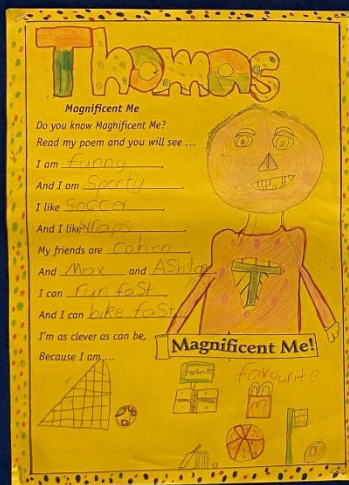 Thomas
Magnificent Me
Do you know Magnificent Me?
Read my poem and you will see ...
I am funny,
And I am Sporty,
I like Soccer,
And I like Wraps.
My friends are Cahan
And Max and AShton
I can run faSt,
And I can bike faSt
I'm as clever as can be,
Because I am...
T
Magnificent Me!
favourite